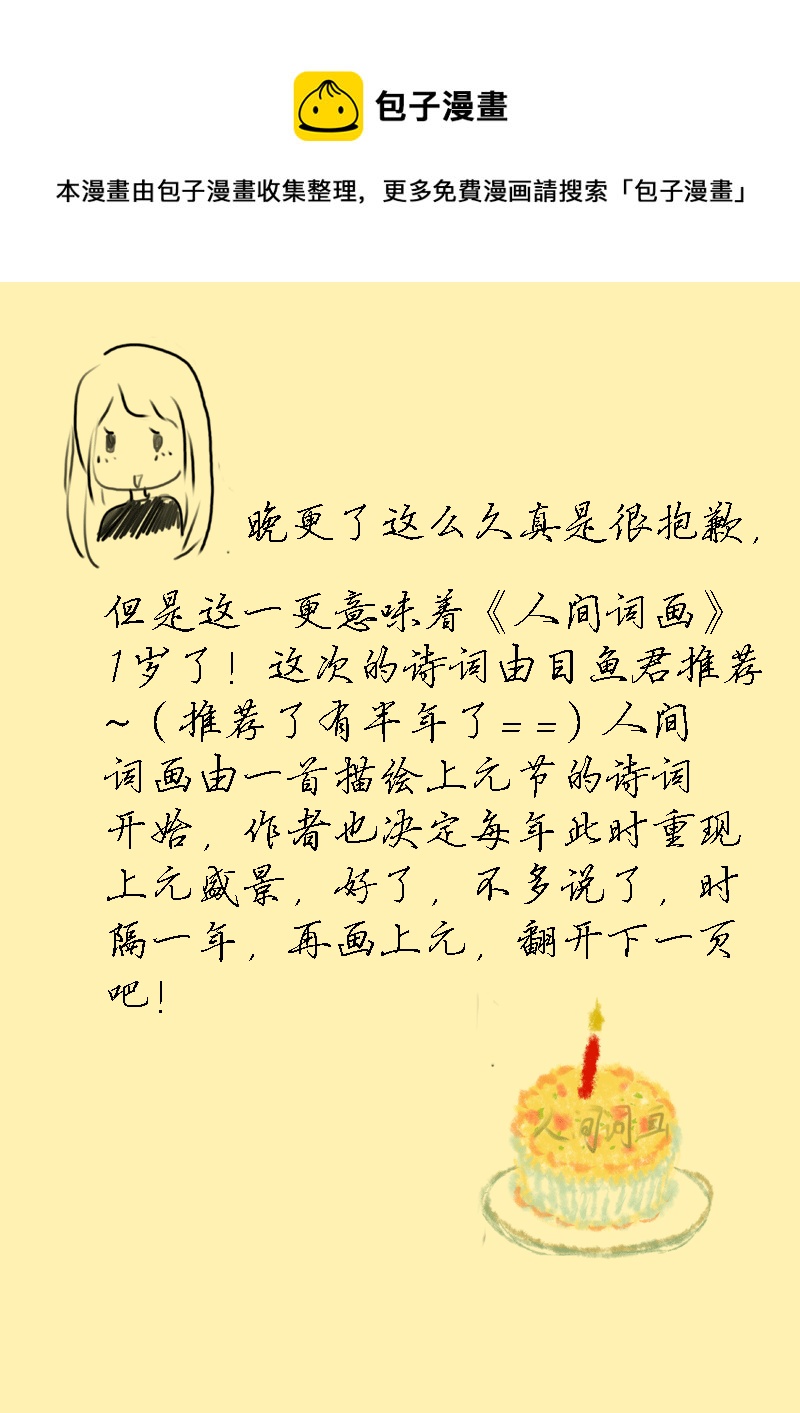 包子漫畫
本漫畫由包子漫畫收集整理，更多免費漫画請搜索「包子漫畫」
晚更了这么久真是很抱歉，
但是这一更意味着《人间词画》
1岁了！这次的诗词由目鱼君推荐
~（推荐了有半年了==）人间
词画由一首描绘上元节的诗词
开始，作者也决定每年此时重现
上元盛景，好了，不多说了，时
隔一年，再画上元，翻开下一页
吧！
人间词画